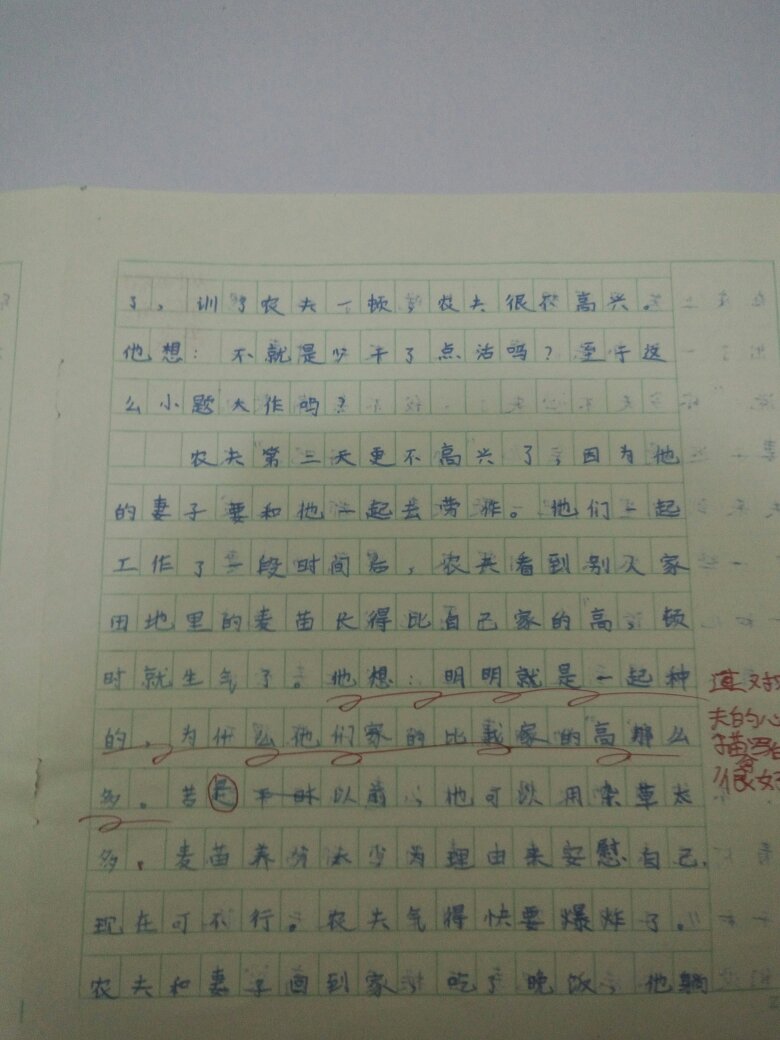 了，训了农夫一顿，农夫很不高兴。
他想：不就是少干了点活吗？至于这
么小题大作吗？
农夫第三天更不高兴了，因为他
的妻子要和他一起去劳作。他们一起
工作了一段时间后，农夫看到别人家
田地里的麦苗长得比自己家的高，顿
时就生气了。他想：明明就是一起种
的，为什么他们家的比我家的高那么
多。若是平时以前，他可以用杂草太
多，麦苗养分太少为理由来安慰自己，
现在可不行。农夫气得快要爆炸了。
农夫和妻子回到家，吃了晚饭，他躺
这对
夫的心
描写
很好